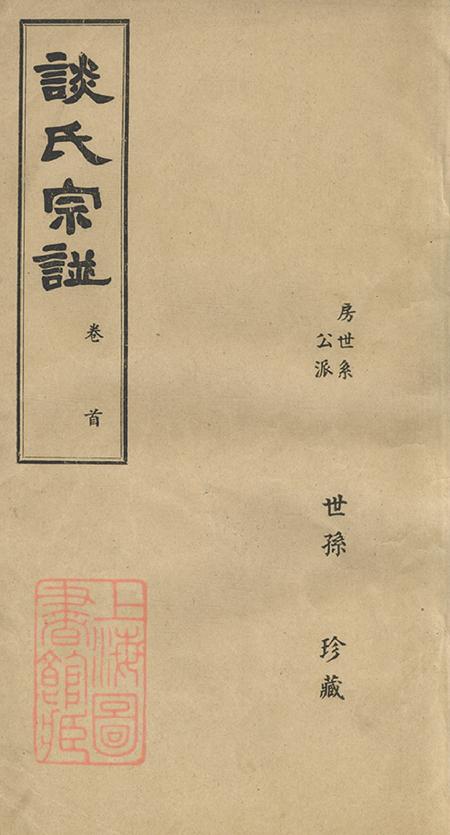 房世系
公派
世孫 珍藏
談氏宗譜
卷首
上海圖
書館藏